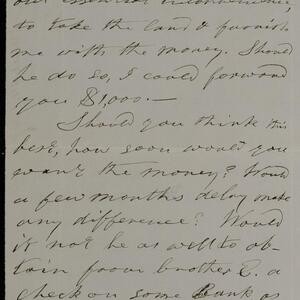 out essential inconvenience,
to take the land & furnish
me with the money. Should
he do so, I could forward
you $1,000.—
Should you think this
best, how soon would you
want the money? Would
a few months delay make
any difference? Would
it not be as well to ob-
tain from brother E. a
check on some Bank as